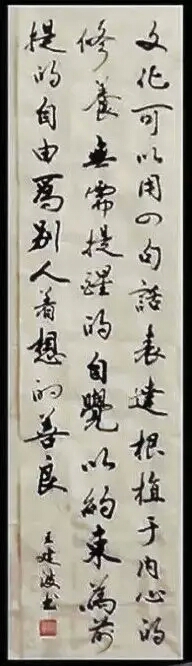 文化可以用四句話表達根植于内心的
修養無需提醒的自覺以約束為前
提的自由爲别人着想的善良
王建波书